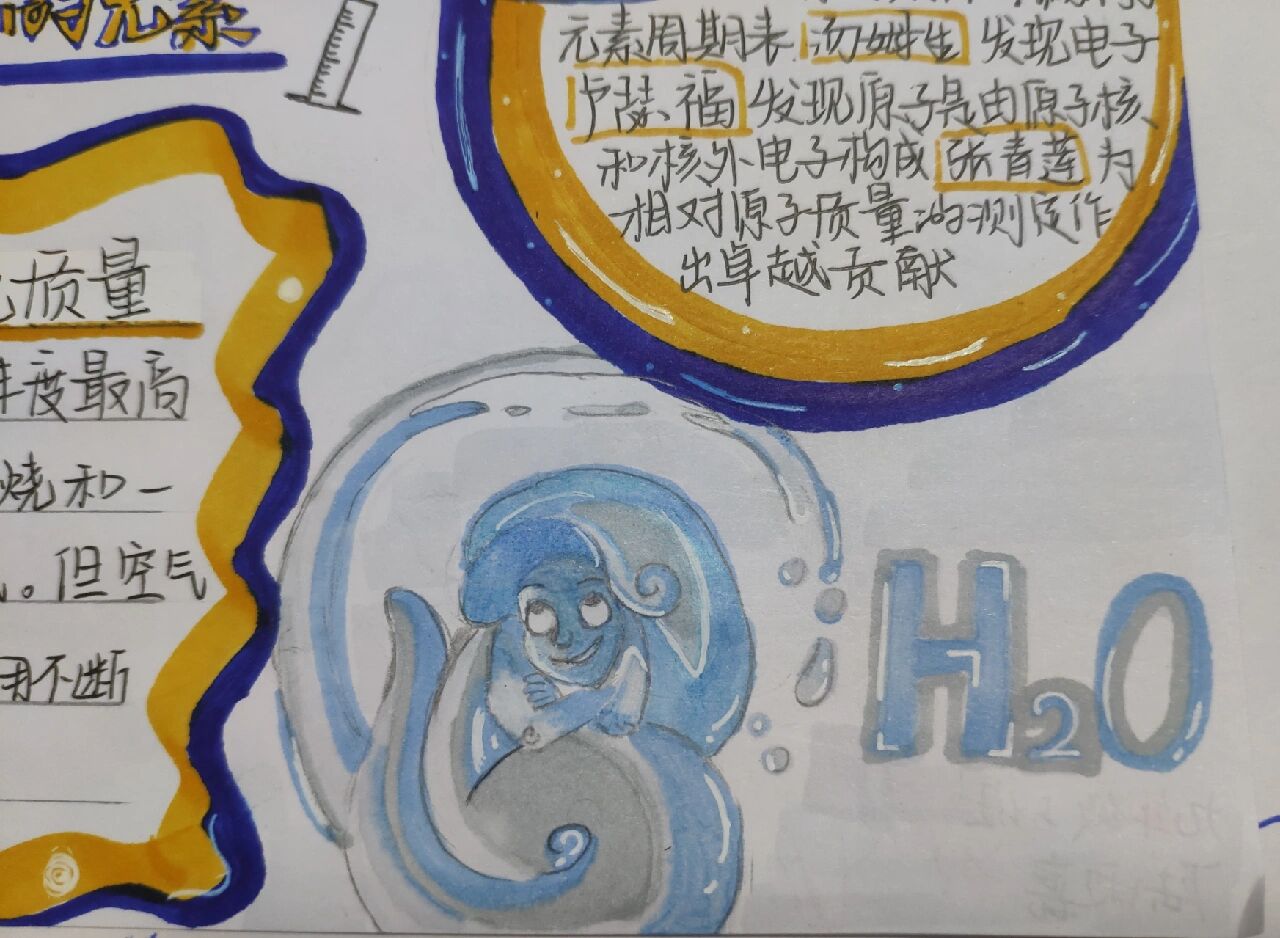 的元素
元素周期表 汤姆生 发现电子
卢瑟福 发现原子是由原子核
和核外电子构成 张青莲 为
相对原子质量的测定作
出卓越贡献
质量
度最高
烧和一
。但空气
用不断
H₂O